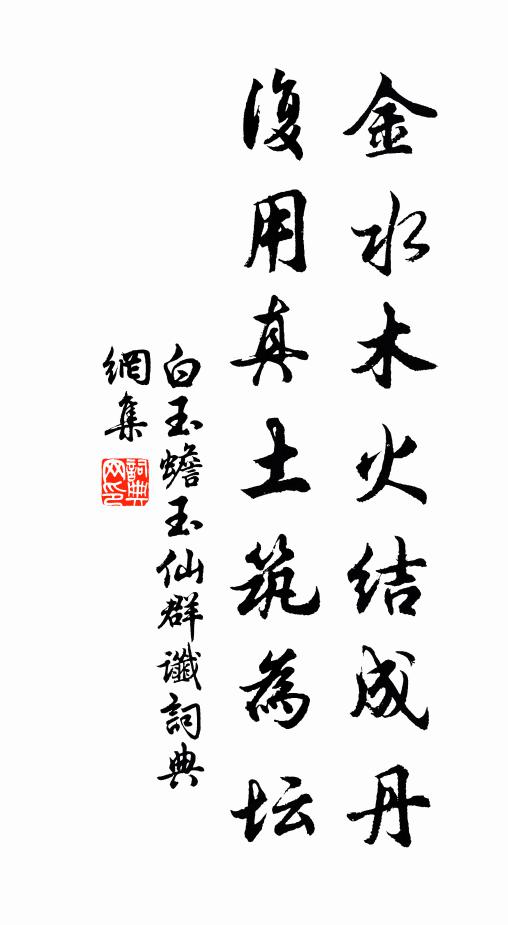 金水木火结成丹
復用真土筑為坛
白玉蟾玉仙群讖詞典
網集
詞典網印